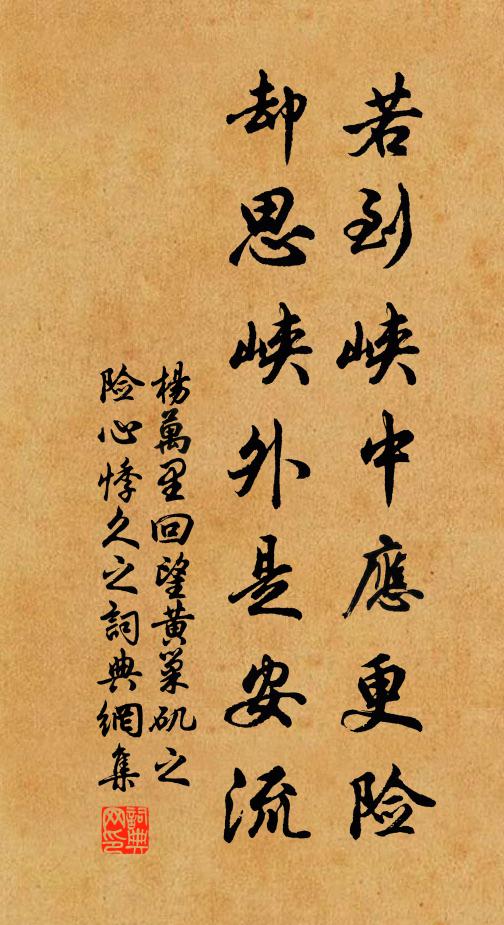 若到峡中應更险
却思峡外是安流
楊萬里回望黄巢矶之
险心悸久之詞典網集
詞典
网印